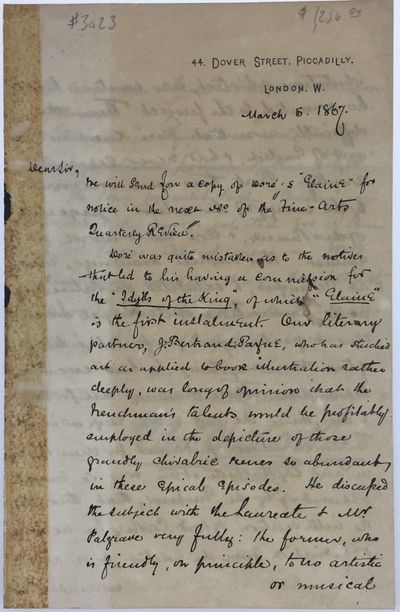 #3023 $1250.00
44. DOVER STREET, PICCADILLY,
LONDON, W.
March 5. 1867.
Dear Sir,
We will send for a copy of Doré's "Elaine" for
notice in the next No. of the Fine-Arts
Quarterly Review".
Doré was quite mistaken as to the motives
that led to his having a commission for
the "Idylls of the King", of which "Elaine"
is the first instalment. Our literary
partner, J. Bertrand Payne, who has studied
art as applied to book-illustration rather
deeply, was long of opinion that the
Frenchman's talents would be profitably
employed in the depicture of those
grandly chivalric scenes so abundant
in these Epical Episodes. He discussed
the subject with the Laureate & Mr
Palgrave very fully: the former, who
is friendly, on principle, to no artistic
or musical